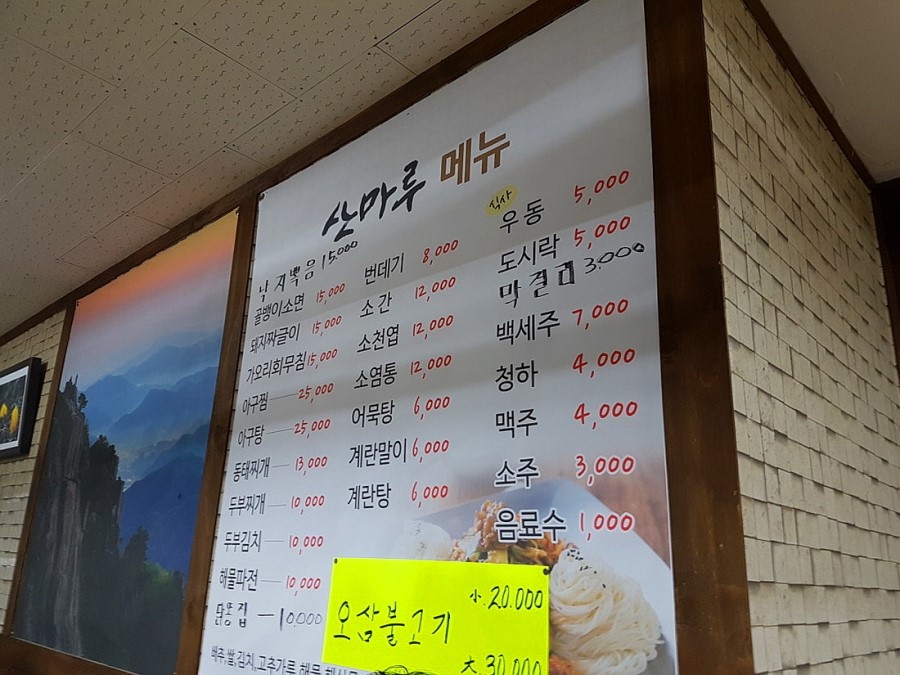 산마루 메뉴
낙지볶음 15.000
골뱅이소면 15,000
돼지짜글이 15,000
가오리회무침 15,000
아구찜 25,000
아구탕 25,000
동태찌개 13,000
두부찌개 10,000
두부김치 10,000
해물파전 10,000
닭똥집 10.000
배추,쌀,김치,고추가루
번데기 8,000
소간 12,000
소천엽 12,000
소염통 12,000
어묵탕 6,000
계란말이 6,000
계란탕 6,000
식사
우동 5,000
도시락 5,000
막걸리 3.000
백세주 7,000
청하 4,000
맥주 4,000
소주 3,000
음료수 1,000
오삼불고기
小.20.000
大.30.000